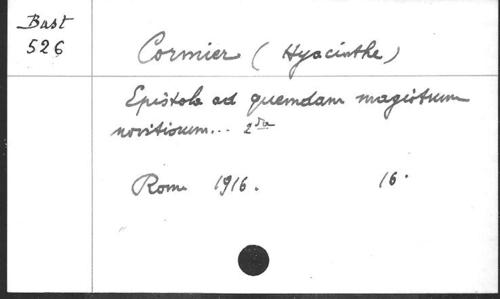 Bast
526
Cormier (Hyacinthe)
Epistola ad quemdam magistrum
novitiorum... 2da
Rom. 1916. 16.